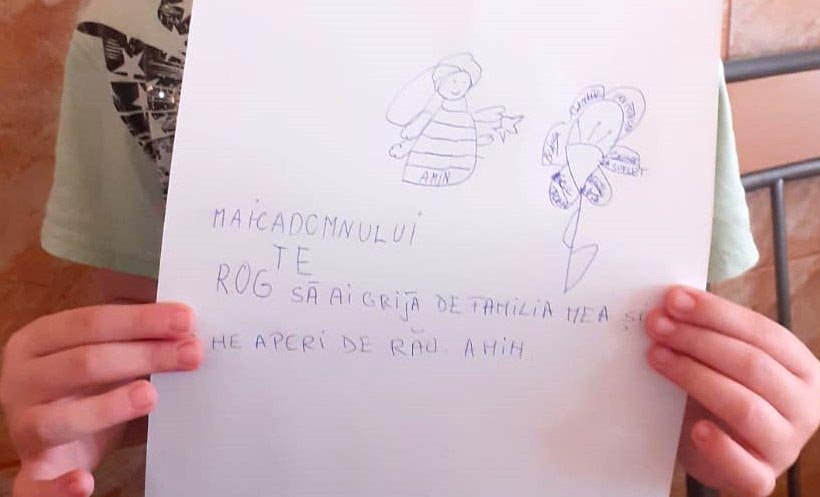 AMIN
MAICADOMNULUI
TE
ROG SĂ AI GRIJĂ DE FAMILIA MEA ȘI
NE APERI DE RĂU. AMIN